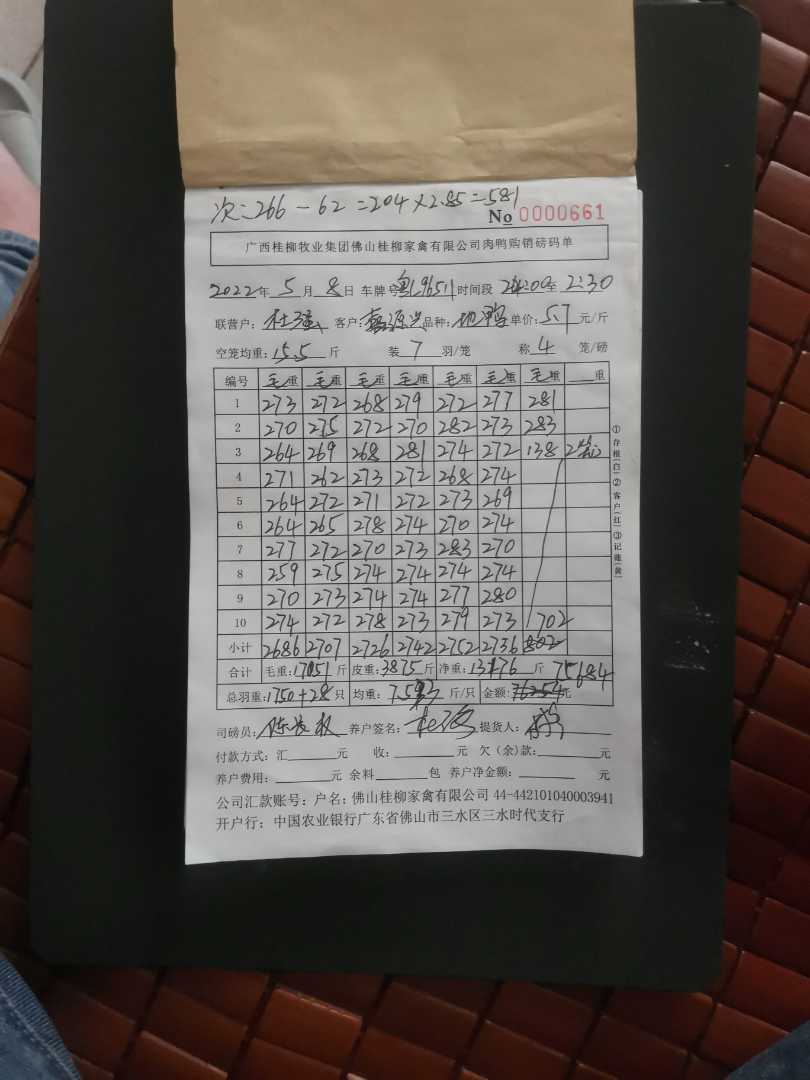 次:266-62=204×2.85=581
No 0000661
广西桂柳牧业集团佛山桂柳家禽有限公司肉鸭购销磅码单
2022年 5 月 8 日 车牌号 粤L9651 时间段 至 2:30
联营户: 杜 客户: 源兴 品种: 地鸭 单价: 5.7 元/斤
空笼均重: 15.5 斤 装 7 羽/笼 称 4 笼/磅
编号 毛重 毛重 毛重 毛重 毛重 毛重 毛重 重
1 273 272 268 279 272 277 281
2 270 275 272 270 282 273 283
3 264 269 268 281 274 272 138 2笼
4 271 262 273 272 268 274
5 264 272 271 272 273 269
6 264 265 278 274 270 274
7 277 272 270 273 283 270
8 259 275 274 274 274 274
9 270 273 274 274 277 280
10 274 272 278 273 279 273 702
小计 2686 2707 2726 2742 2752 2736
合计 毛重: 17051 斤 皮重: 3875 斤 净重: 13176 斤 75684
总羽重: 1750+28 只 均重: 斤/只 金额: 元
司磅员: 陈 养户签名: 杜 提货人:
付款方式: 汇 元 收: 元 欠(余)款: 元
养户费用: 元 余料 包 养户净金额: 元
公司汇款账号: 户名: 佛山桂柳家禽有限公司 44-442101040003941
开户行: 中国农业银行广东省佛山市三水区三水时代支行
①存根(白)②客户(红)③记账(黄)